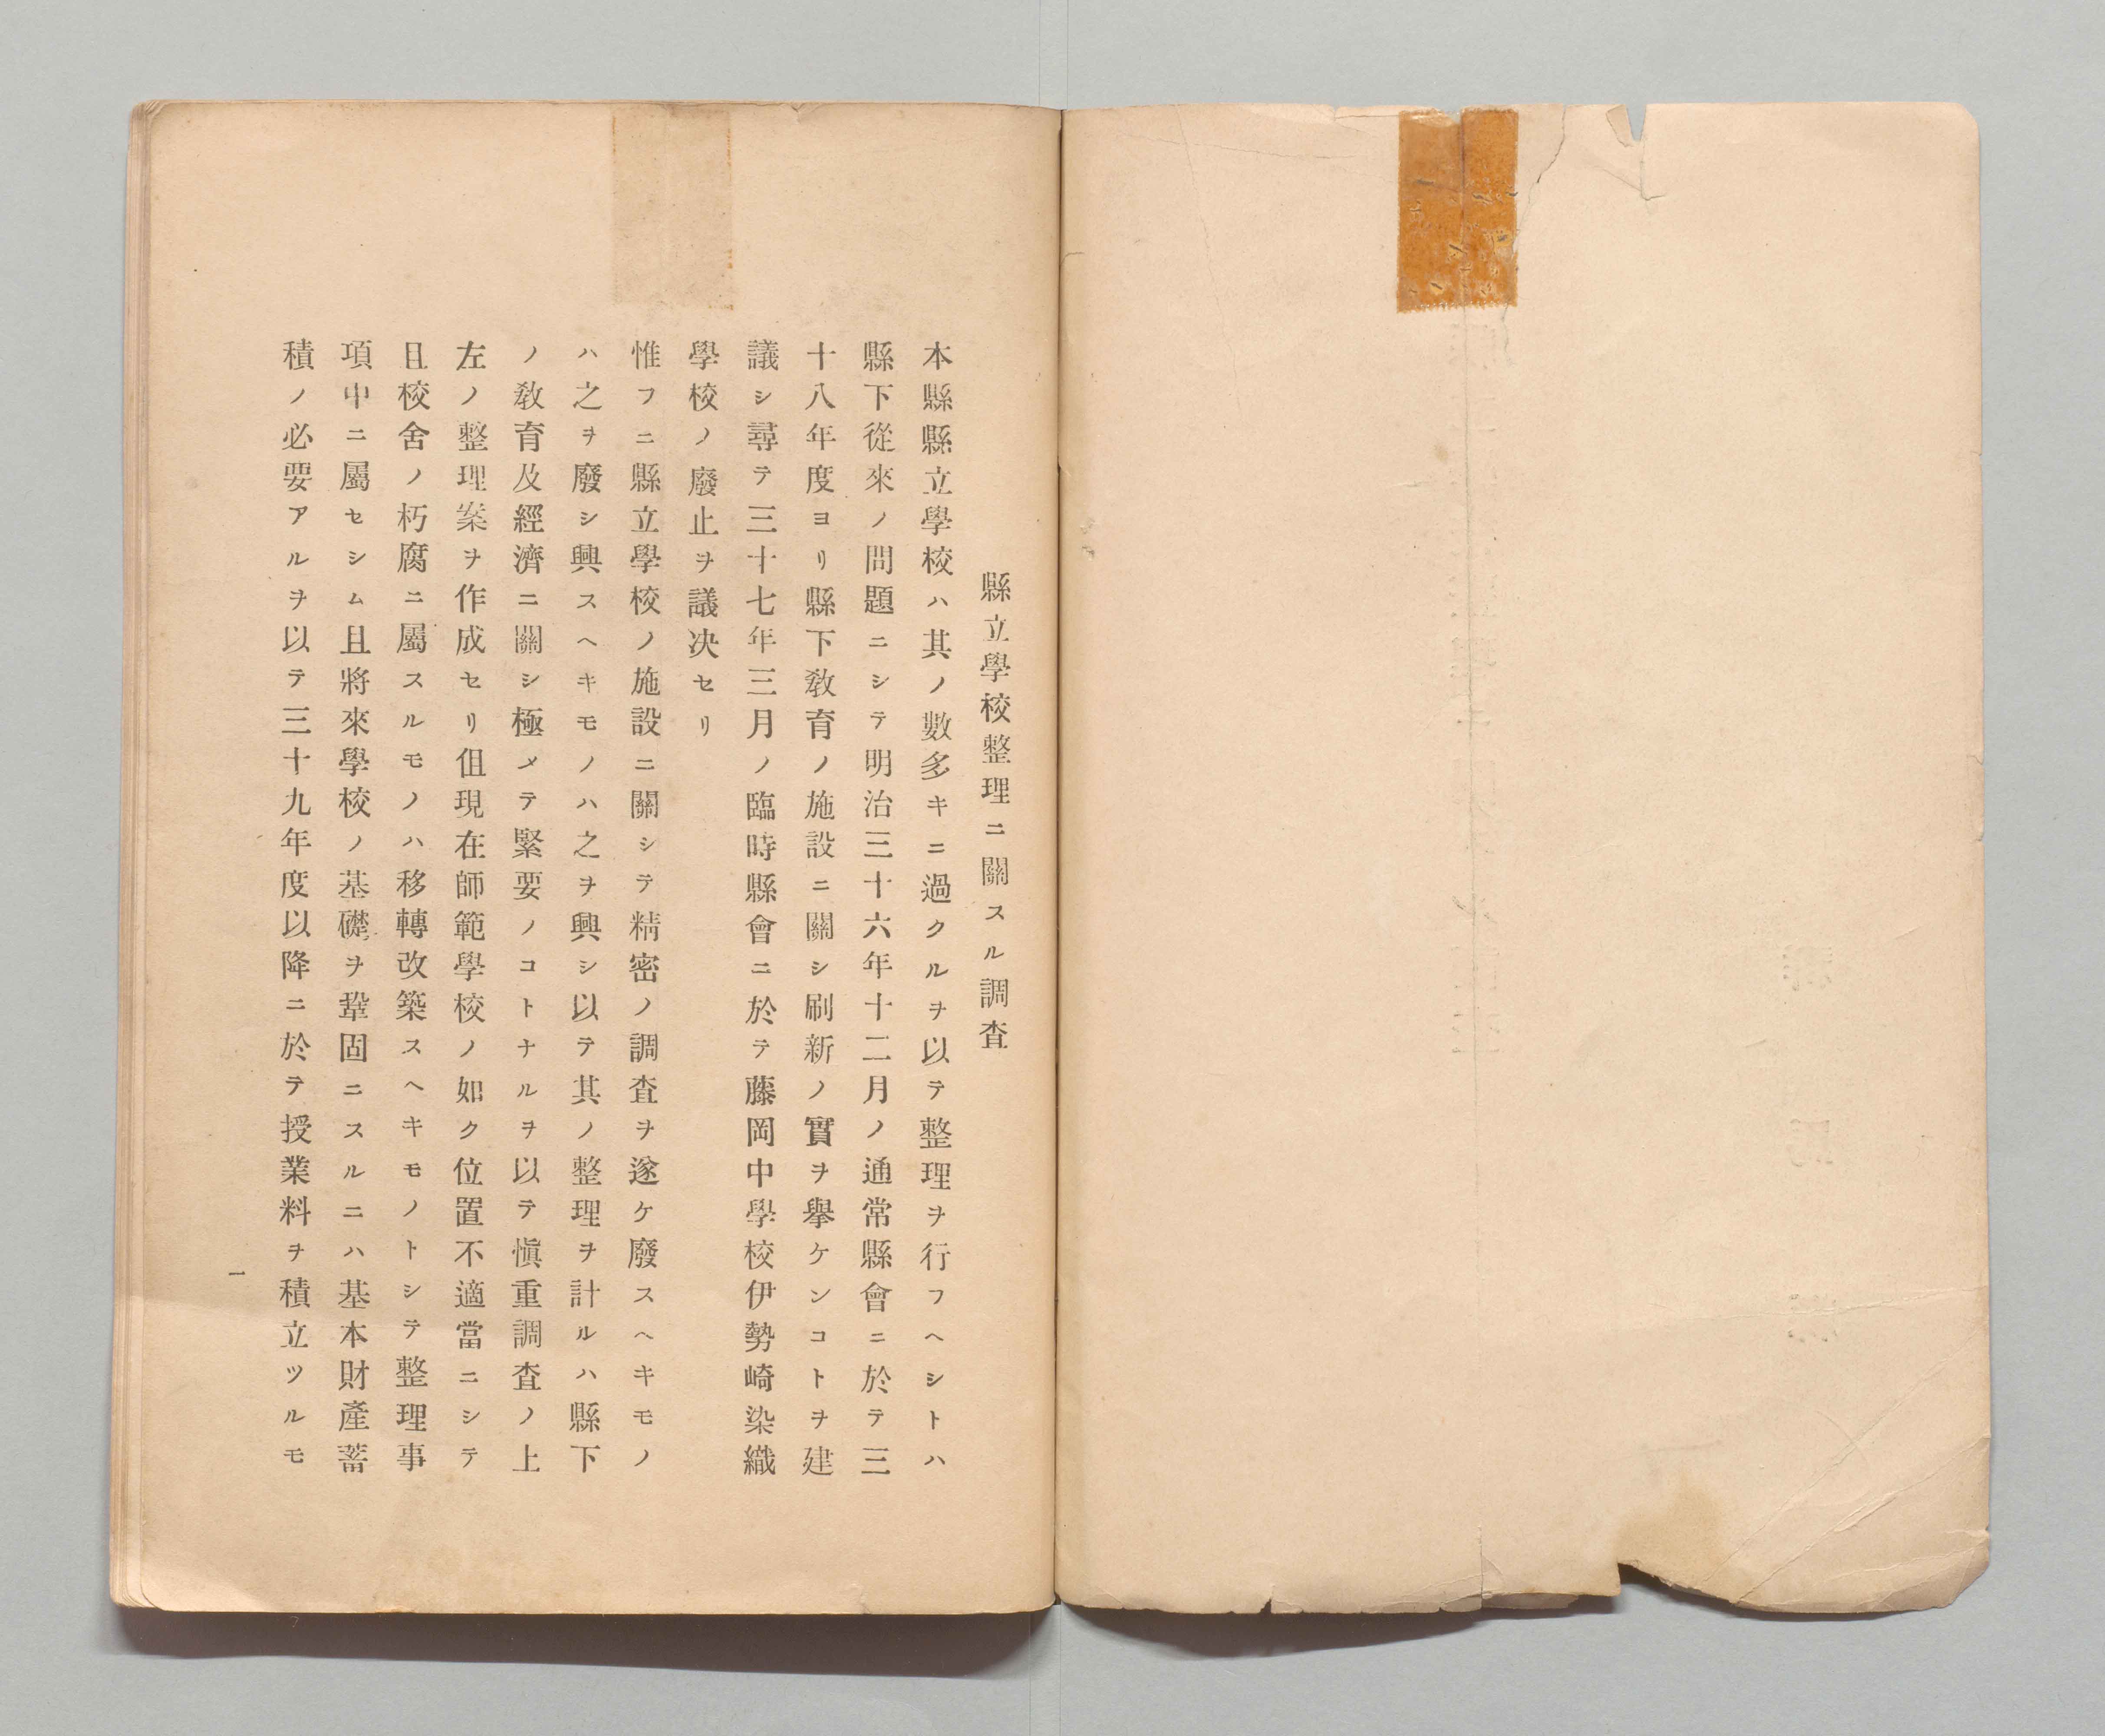 縣立學校整理ニ關スル調査
本縣縣立學校ハ其ノ數多キニ過クルヲ以テ整理ヲ行フヘシトハ
縣下從來ノ問題ニシテ明治三十六年十二月ノ通常縣會ニ於テ三
十八年度ヨリ縣下敎育ノ施設ニ關シ刷新ノ實ヲ擧ケンコトヲ建
議シ尋テ三十七年三月ノ臨時縣會ニ於テ藤岡中學校伊勢崎染織
學校ノ廢止ヲ議決セリ
惟フニ縣立學校ノ施設ニ關シテ精密ノ調査ヲ遂ケ廢スヘキモノ
ハ之ヲ廢シ興スヘキモノハ之ヲ興シ以テ其ノ整理ヲ計ルハ縣下
ノ敎育及經濟ニ關シ極メテ緊要ノコトナルヲ以テ愼重調査ノ上
左ノ整理案ヲ作成セリ伹現在師範學校ノ如ク位置不適當ニシテ
且校舍ノ朽腐ニ屬スルモノハ移轉改築スヘキモノトシテ整理事
項中ニ屬セシム且將來學校ノ基礎ヲ鞏固ニスルニハ基本財產蓄
積ノ必要アルヲ以テ三十九年度以降ニ於テ授業料ヲ積立ツルモ
一